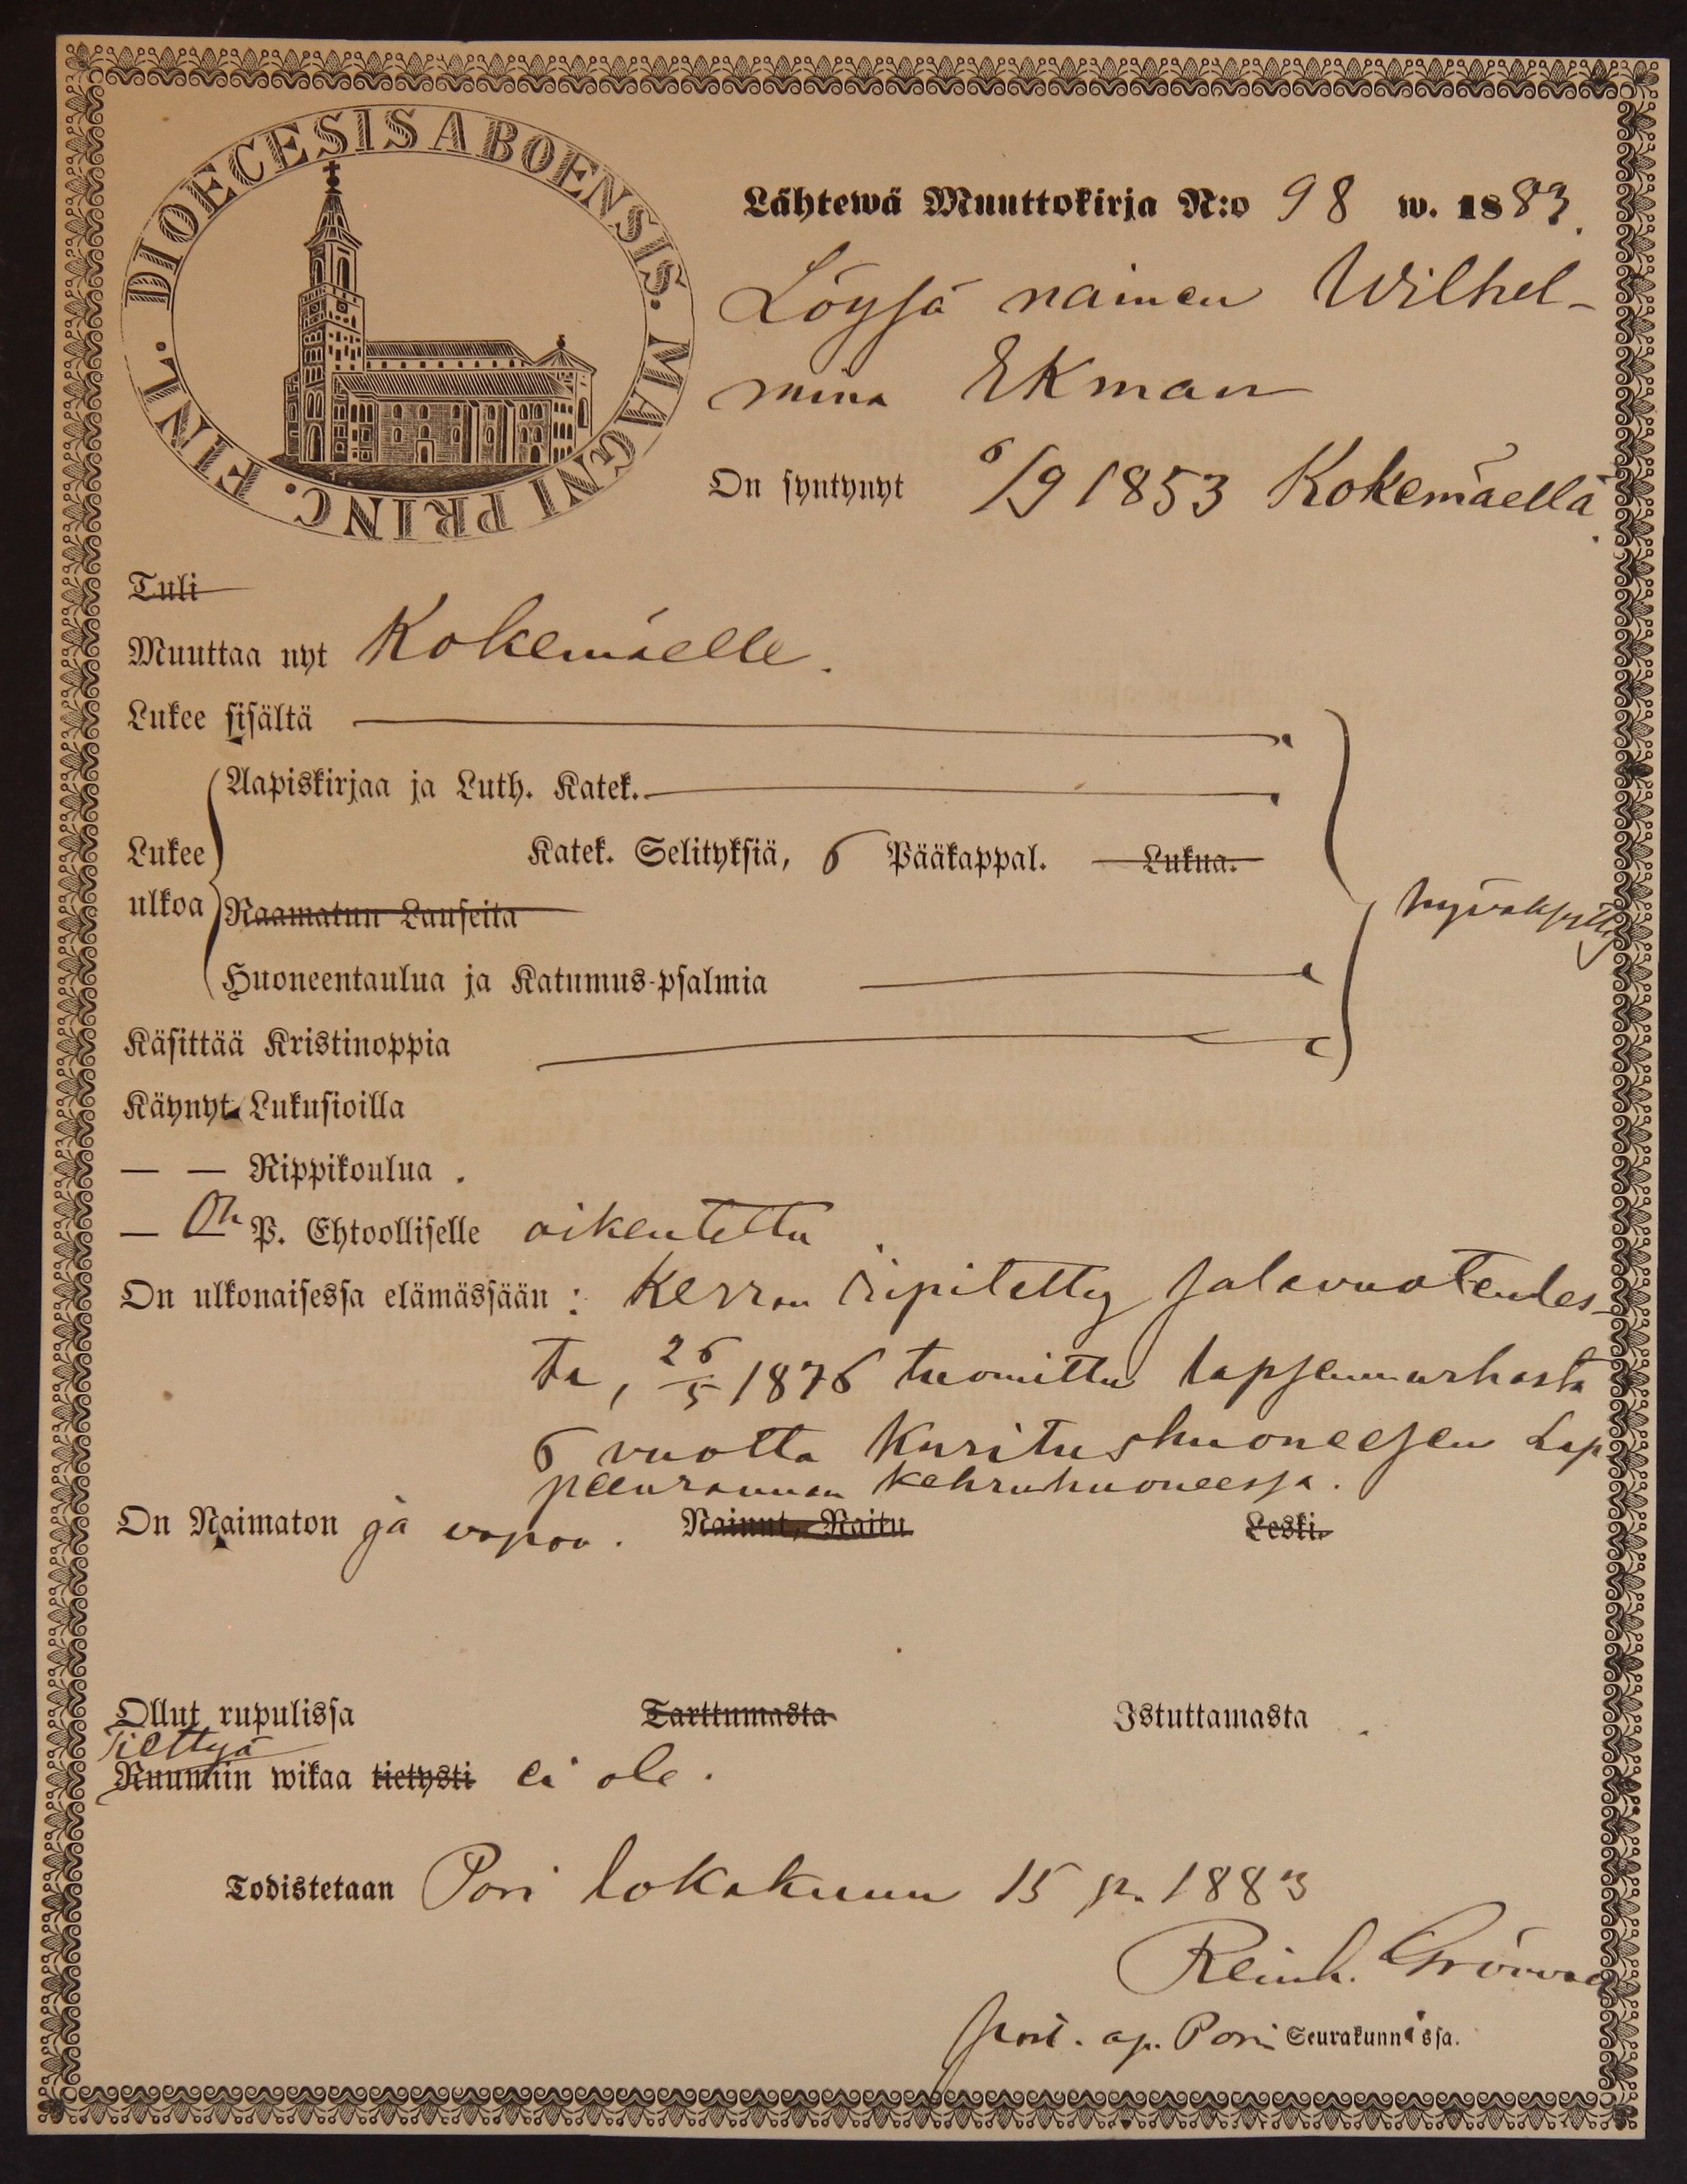 DIOECESIS ABOENSIS. MAGNI PRINC. FINL.
Lähtewä Muuttokirja N:o 98 w. 1883.
Löysä nainen Wilhel-
mina Ekman
On syntynyt 6/9 1853 Kokemäellä.
Tuli
Muuttaa nyt Kokemäelle.
Lukee sisältä
Aapiskirjaa ja Luth. Katek.
Lukee Katek. Selityksiä, 6 Pääkappal. Lukua.
ulkoa Raamatun Lauseita hyväksyttä
Huoneentaulua ja Katumus-psalmia
Käsittää Kristinoppia
Käynyt Lukusioilla
— — Rippikoulua.
— On P. Ehtoolliselle oikeutettu
On ulkonaisessa elämässään: Kerran ripitetty salavuoteudes-
ta, 26/5 1876 tuomittu lapsenmurhasta
6 vuotta Kuritushuoneesen Lap
peenrannan kehruhuoneessa.
On Naimaton ja vapaa. Nainut, Naitu Leski.
Ollut rupulissa Tarttumasta Istuttamasta.
Tiettyä
Ruumiin wikaa tietysti ei ole.
Todistetaan Pori lokakuun 15 p. 1883
Reinh. Grönvall
past. ap. Pori Seurakunnissa.